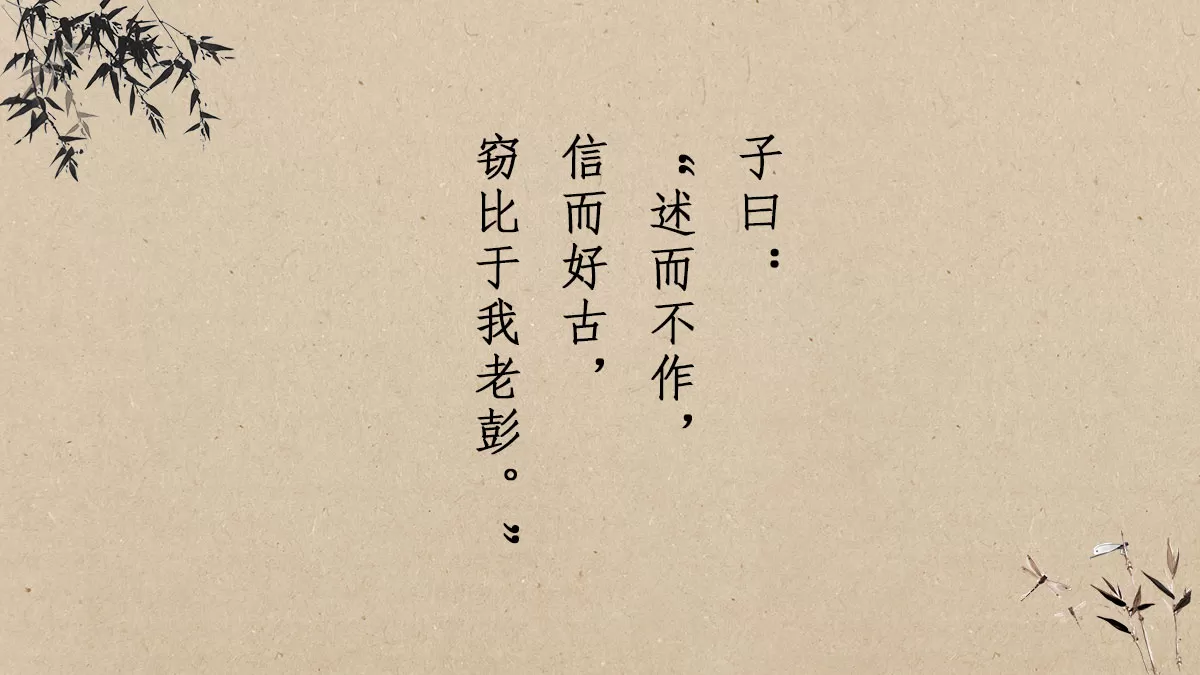 子曰：
“述而不作，
信而好古，
窃比于我老彭。”